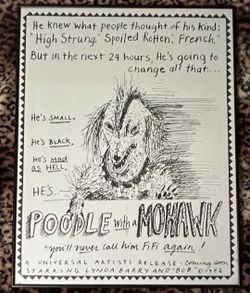 He knew what people thought of his kind:
"High Strung." "Spoiled Rotten." "French."
But in the next 24 hours, He's going to
change all that...
He's SMALL.
He's BLACK.
He's mad
as HELL.
HE'S...
POODLE with a MOHAWK
"you'll never call him FiFi again!"
A UNIVERSAL ARTISTS RELEASE · Coming Soon
STARRING LYNDA BARRY AND "BOB"